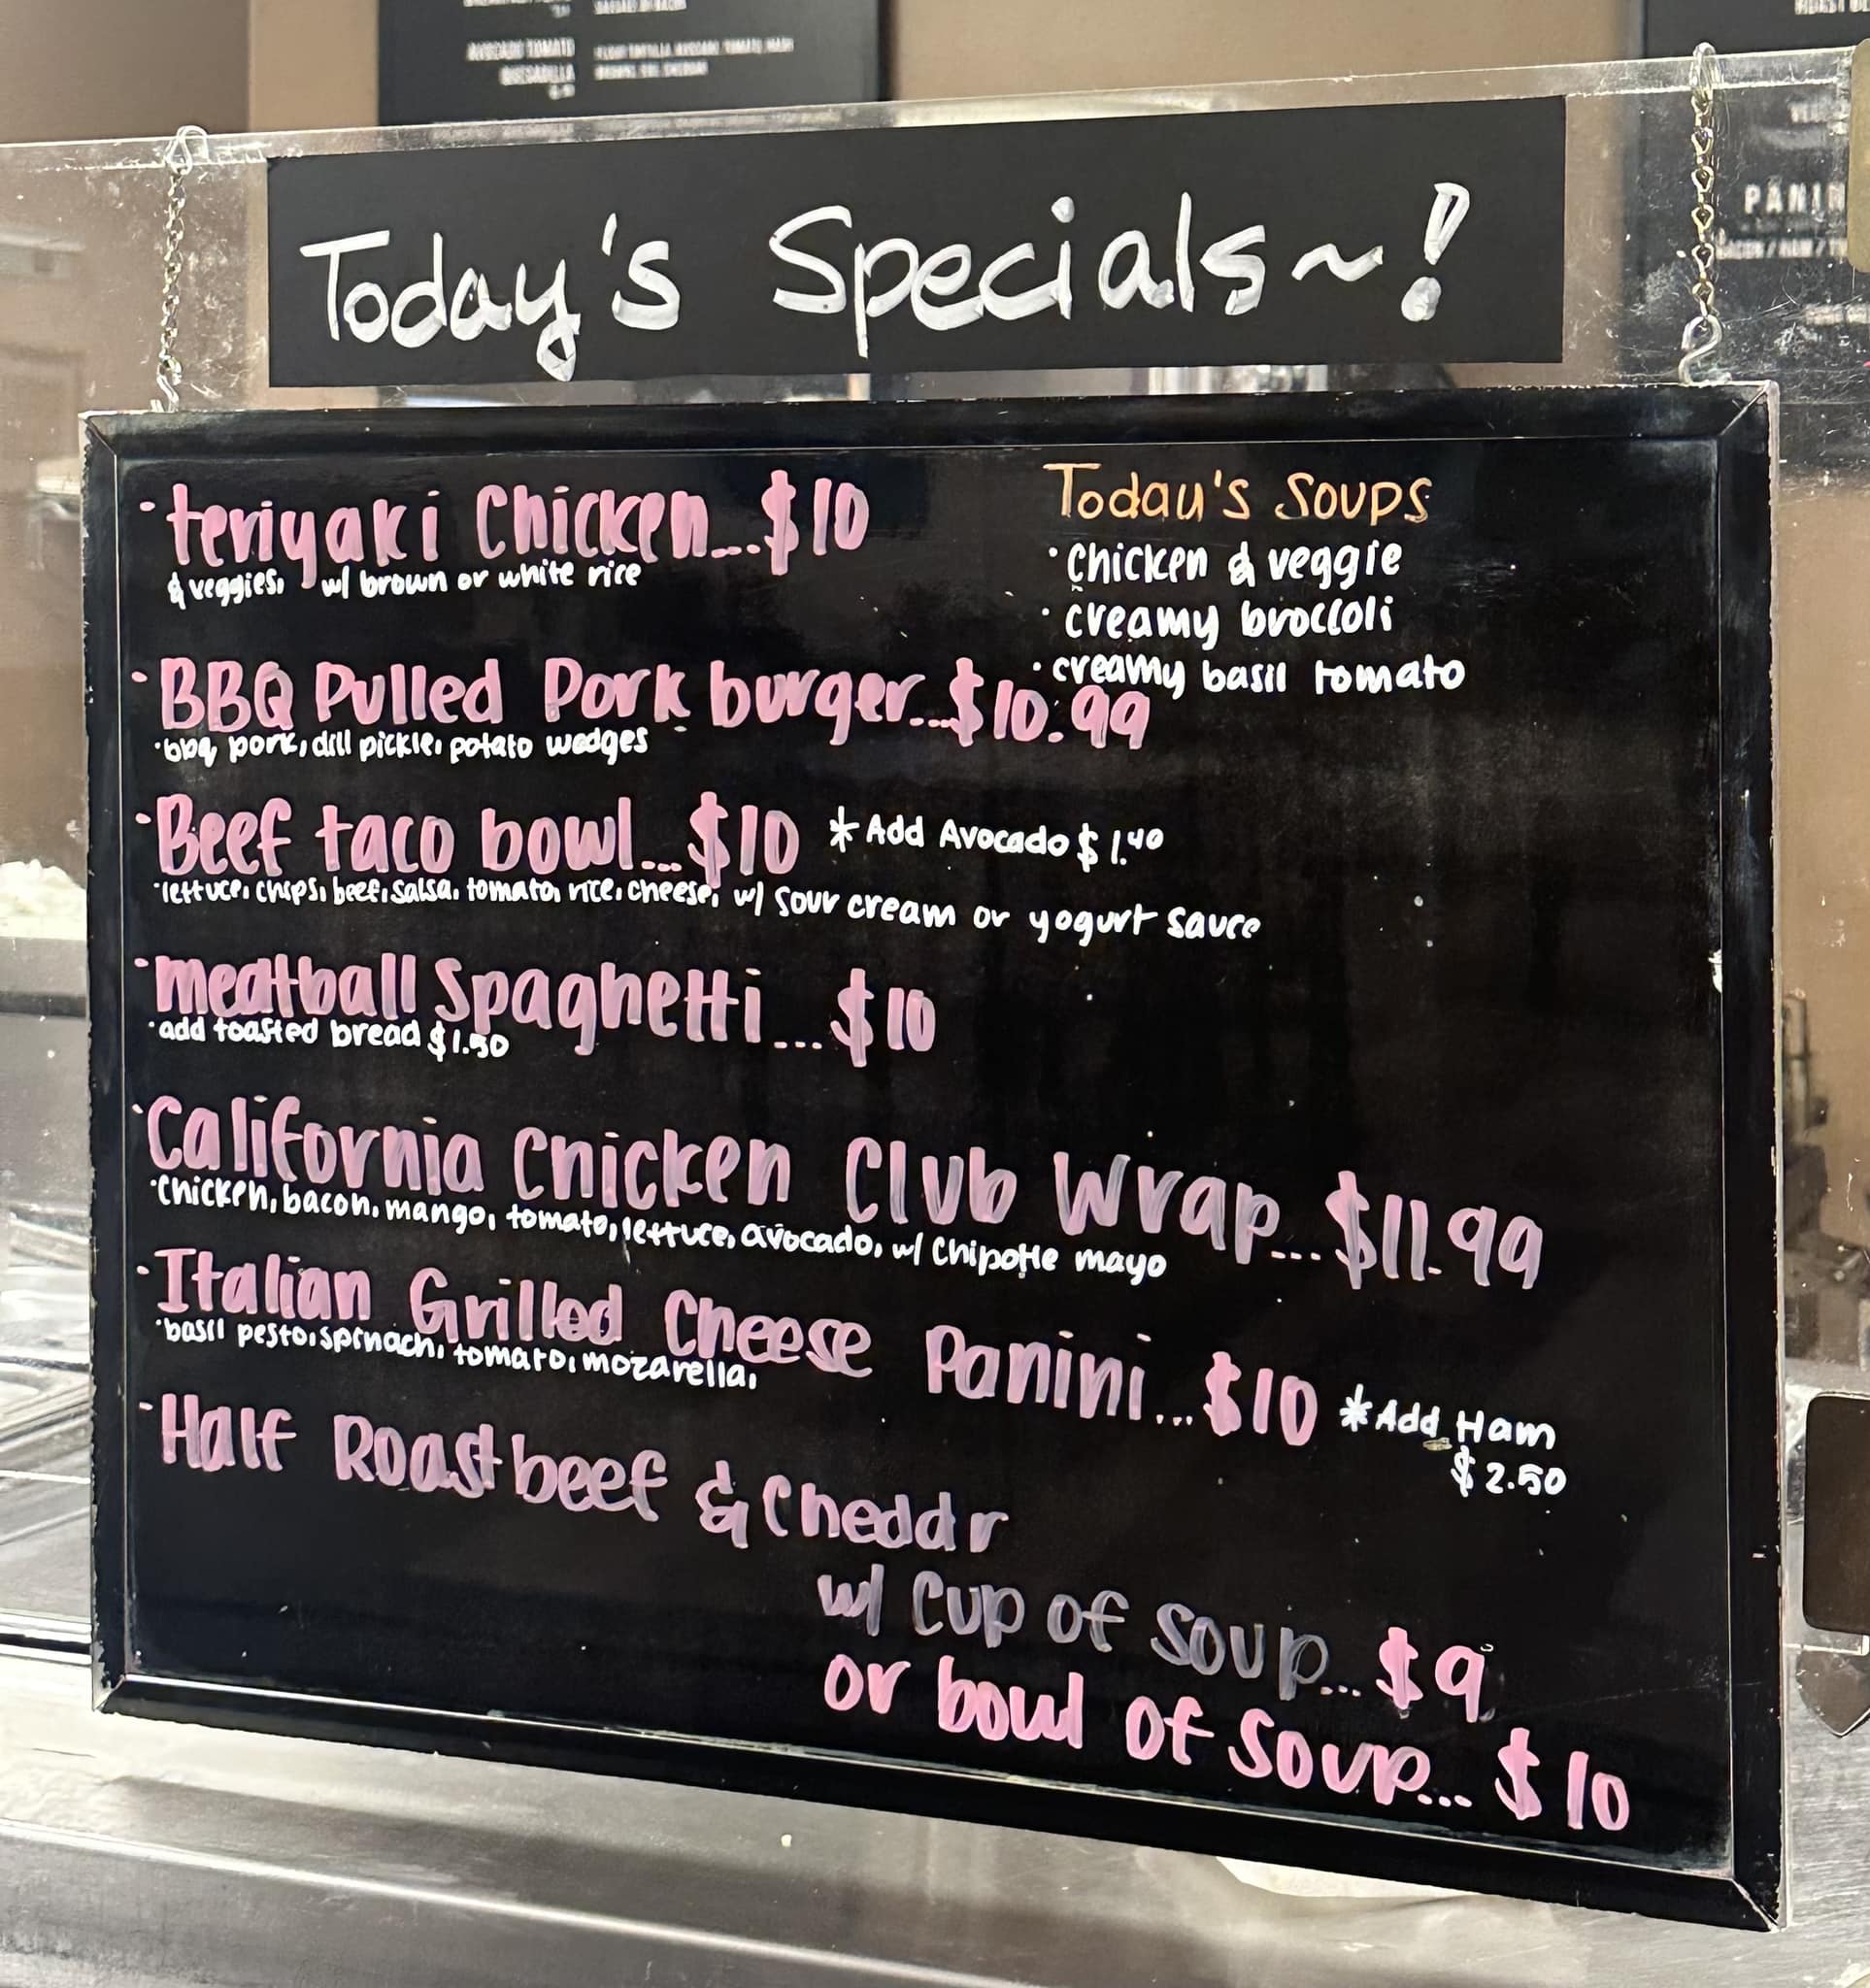 AVOCADO TOMATO
QUESADILLA
PANIN
Today's Specials~!
·teriyaki Chicken...$10
& veggies, w/ brown or white rice
Today's Soups
·Chicken & veggie
·creamy broccoli
·creamy basil tomato
·BBQ Pulled Pork burger...$10.99
·bbq pork, dill pickle, potato wedges
·Beef taco bowl...$10 *Add Avocado $1.40
·lettuce, chips, beef, salsa, tomato, rice, cheese, w/ sour cream or yogurt sauce
·meatball Spaghetti...$10
·add toasted bread $1.50
·California Chicken Club Wrap...$11.99
·Chicken, bacon, mango, tomato, lettuce, avocado, w/ Chipotle mayo
·Italian Grilled Cheese Panini...$10 *Add Ham
$2.50
·basil pesto, spinach, tomato, mozarella,
·Half Roast beef & Cheddr
w/ Cup of Soup...$9
or bowl of Soup...$10